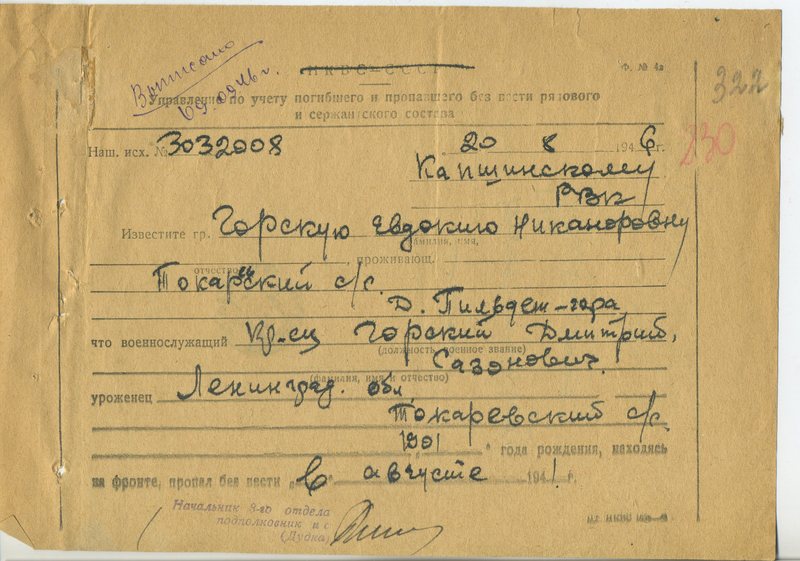 Выписано
НКВД-СССР
Ф. № 4а
322
Управление по учету погибшего и пропавшего без вести рядового
и сержантского состава
Наш. исх. № 3032008
20 8 1946 г.
230
Капшинскому
РВК
Известите гр. Горскую Евдокию Никаноровну
фамилия, имя,
отчество проживающ.
Токарский с/с.
что военнослужащий Кр-ец Горский Дмитрий,
(должность, военное звание)
Сазонович.
(фамилия, имя и отчество)
уроженец Ленинград. обл
Токаревский с/с.
1901 года рождения, находясь
на фронте, пропал без вести „в" августе 1941 г.
Начальник 8-го отдела
подполковник и с
(Дудка)